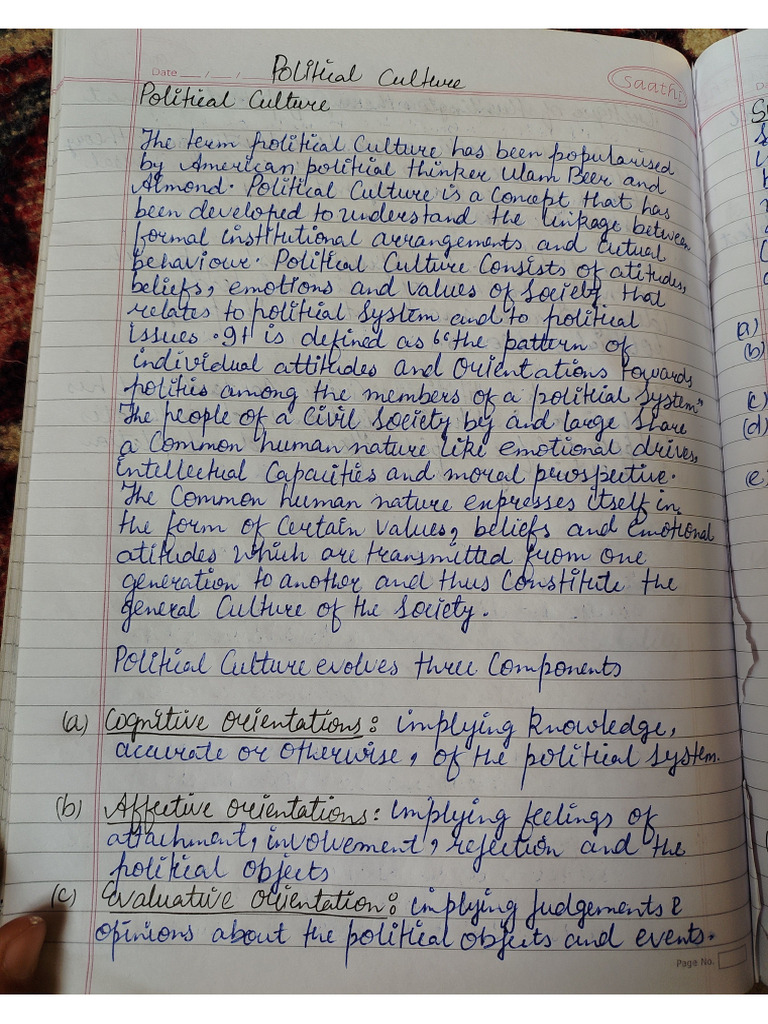 Date __/__/__ Political Culture
saathi
Political Culture
The term political Culture has been popularised
by American political thinker Ulam Beer and
Almond. Political Culture is a Concept that has
been developed to understand the linkage between
formal institutional arrangements and cutual
behaviour. Political Culture Consists of atitudes,
beliefs, emotions and values of society that
relates to political system and to political
issues. It is defined as "the pattern of
individual attitudes and orientations towards
politics among the members of a political system"
The people of a civil society by and large share
a Common human nature like emotional drives,
intellectual Capacities and moral perospective.
The Common human nature expresses itself in
the form of certain values, beliefs and emotional
atitudes which are transmitted from one
generation to another and thus Constitute the
general Culture of the society.
Political Culture evolves three Components
(a) Cognitive orientations: implying knowledge,
accurate or otherwise, of the political system.
(b) Affective orientations: implying feelings of
attachment, involvement, rejection and the
political objects
(c) Evaluative orientation: implying judgements &
opinions about the political objects and events.
Page No.
(a)
(b)
(c)
(d)
(e)